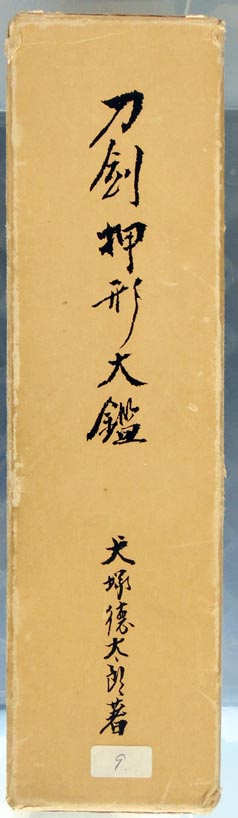 刀剣押形大鑑
犬塚徳太郎著
9.